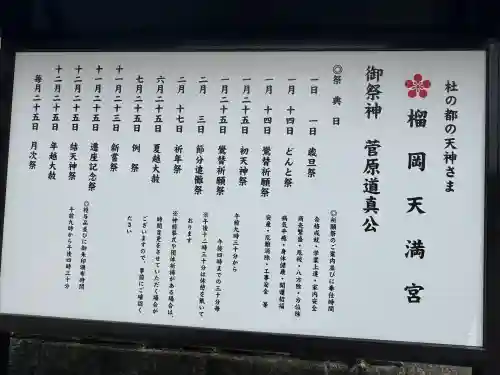 杜の都の天神さま
榴岡天満宮
御祭神 菅原道真公
◎祭典日
一月 一日 歳旦祭
一月 十四日 どんと祭
一月 十四日 鷽替祈願祭
一月二十五日 初天神祭
一月二十五日 鷽替祈願祭
二月 三日 節分追儺祭
二月 十七日 祈年祭
六月二十五日 夏越大祓
七月二十五日 例祭
十一月二十三日 新嘗祭
十一月二十五日 遷座記念祭
十二月二十五日 結天神祭
十二月二十五日 年越大祓
毎月二十五日 月次祭
◎祈願祭のご案内並びに奉仕時間
合格成就・学業上達・家内安全
商売繁盛・厄祓・八方除・方位除
病気平癒・身体健康・開運招福
安産・厄難消除・工事安全 等
午前九時三十分から
午後四時までの三十分毎
※午後十二時三十分は休憩を戴いて
おります
※神前挙式や団体祈祷がある場合は、
時間変更をさせていただく場合が
ございますので、事前にご確認く
ださい
◎授与品並びに御朱印頒布時間
午前九時から午後四時三十分